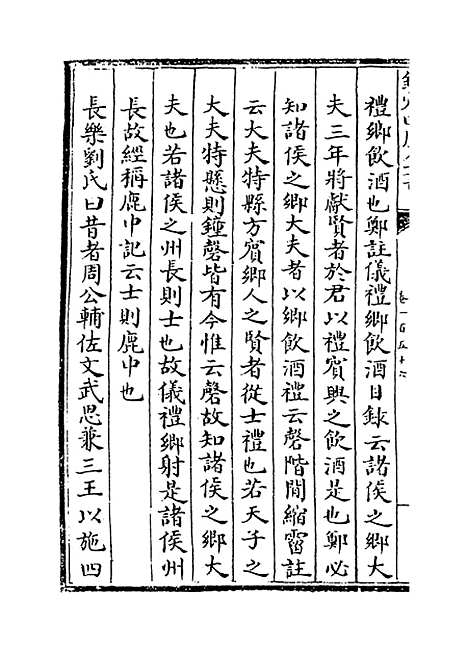 禮鄉飲酒也鄭註儀禮鄉飲酒目錄云諸侯之鄉大
夫三年將獻賢者於君以禮賓興之飲酒是也鄭必
知諸侯之鄉大夫者以鄉飲酒禮云磬階間縮霤註
云大夫特縣方賓鄉人之賢者從士禮也若天子之
大夫特懸則鐘磬皆有今惟云磬故知諸侯之鄉大
夫也若諸侯之州長則士也故儀禮鄉射是諸侯州
長故經稱鹿中記云士則鹿中也
長樂劉氏曰昔者周公輔佐文武思兼三王以施四